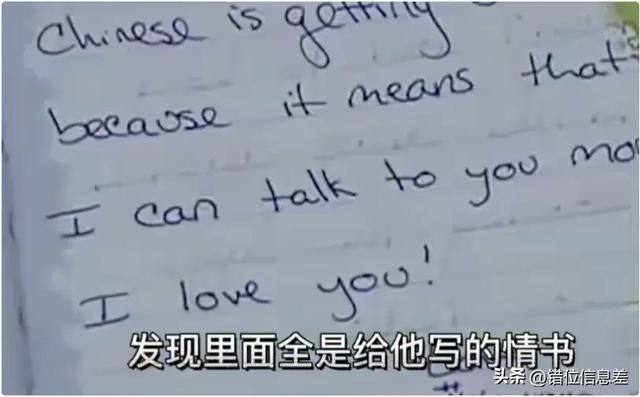 Chinese is getting
because it means that
I can talk to you
I love you!
发现里面全是给他写的情书
头条 @错位信息差